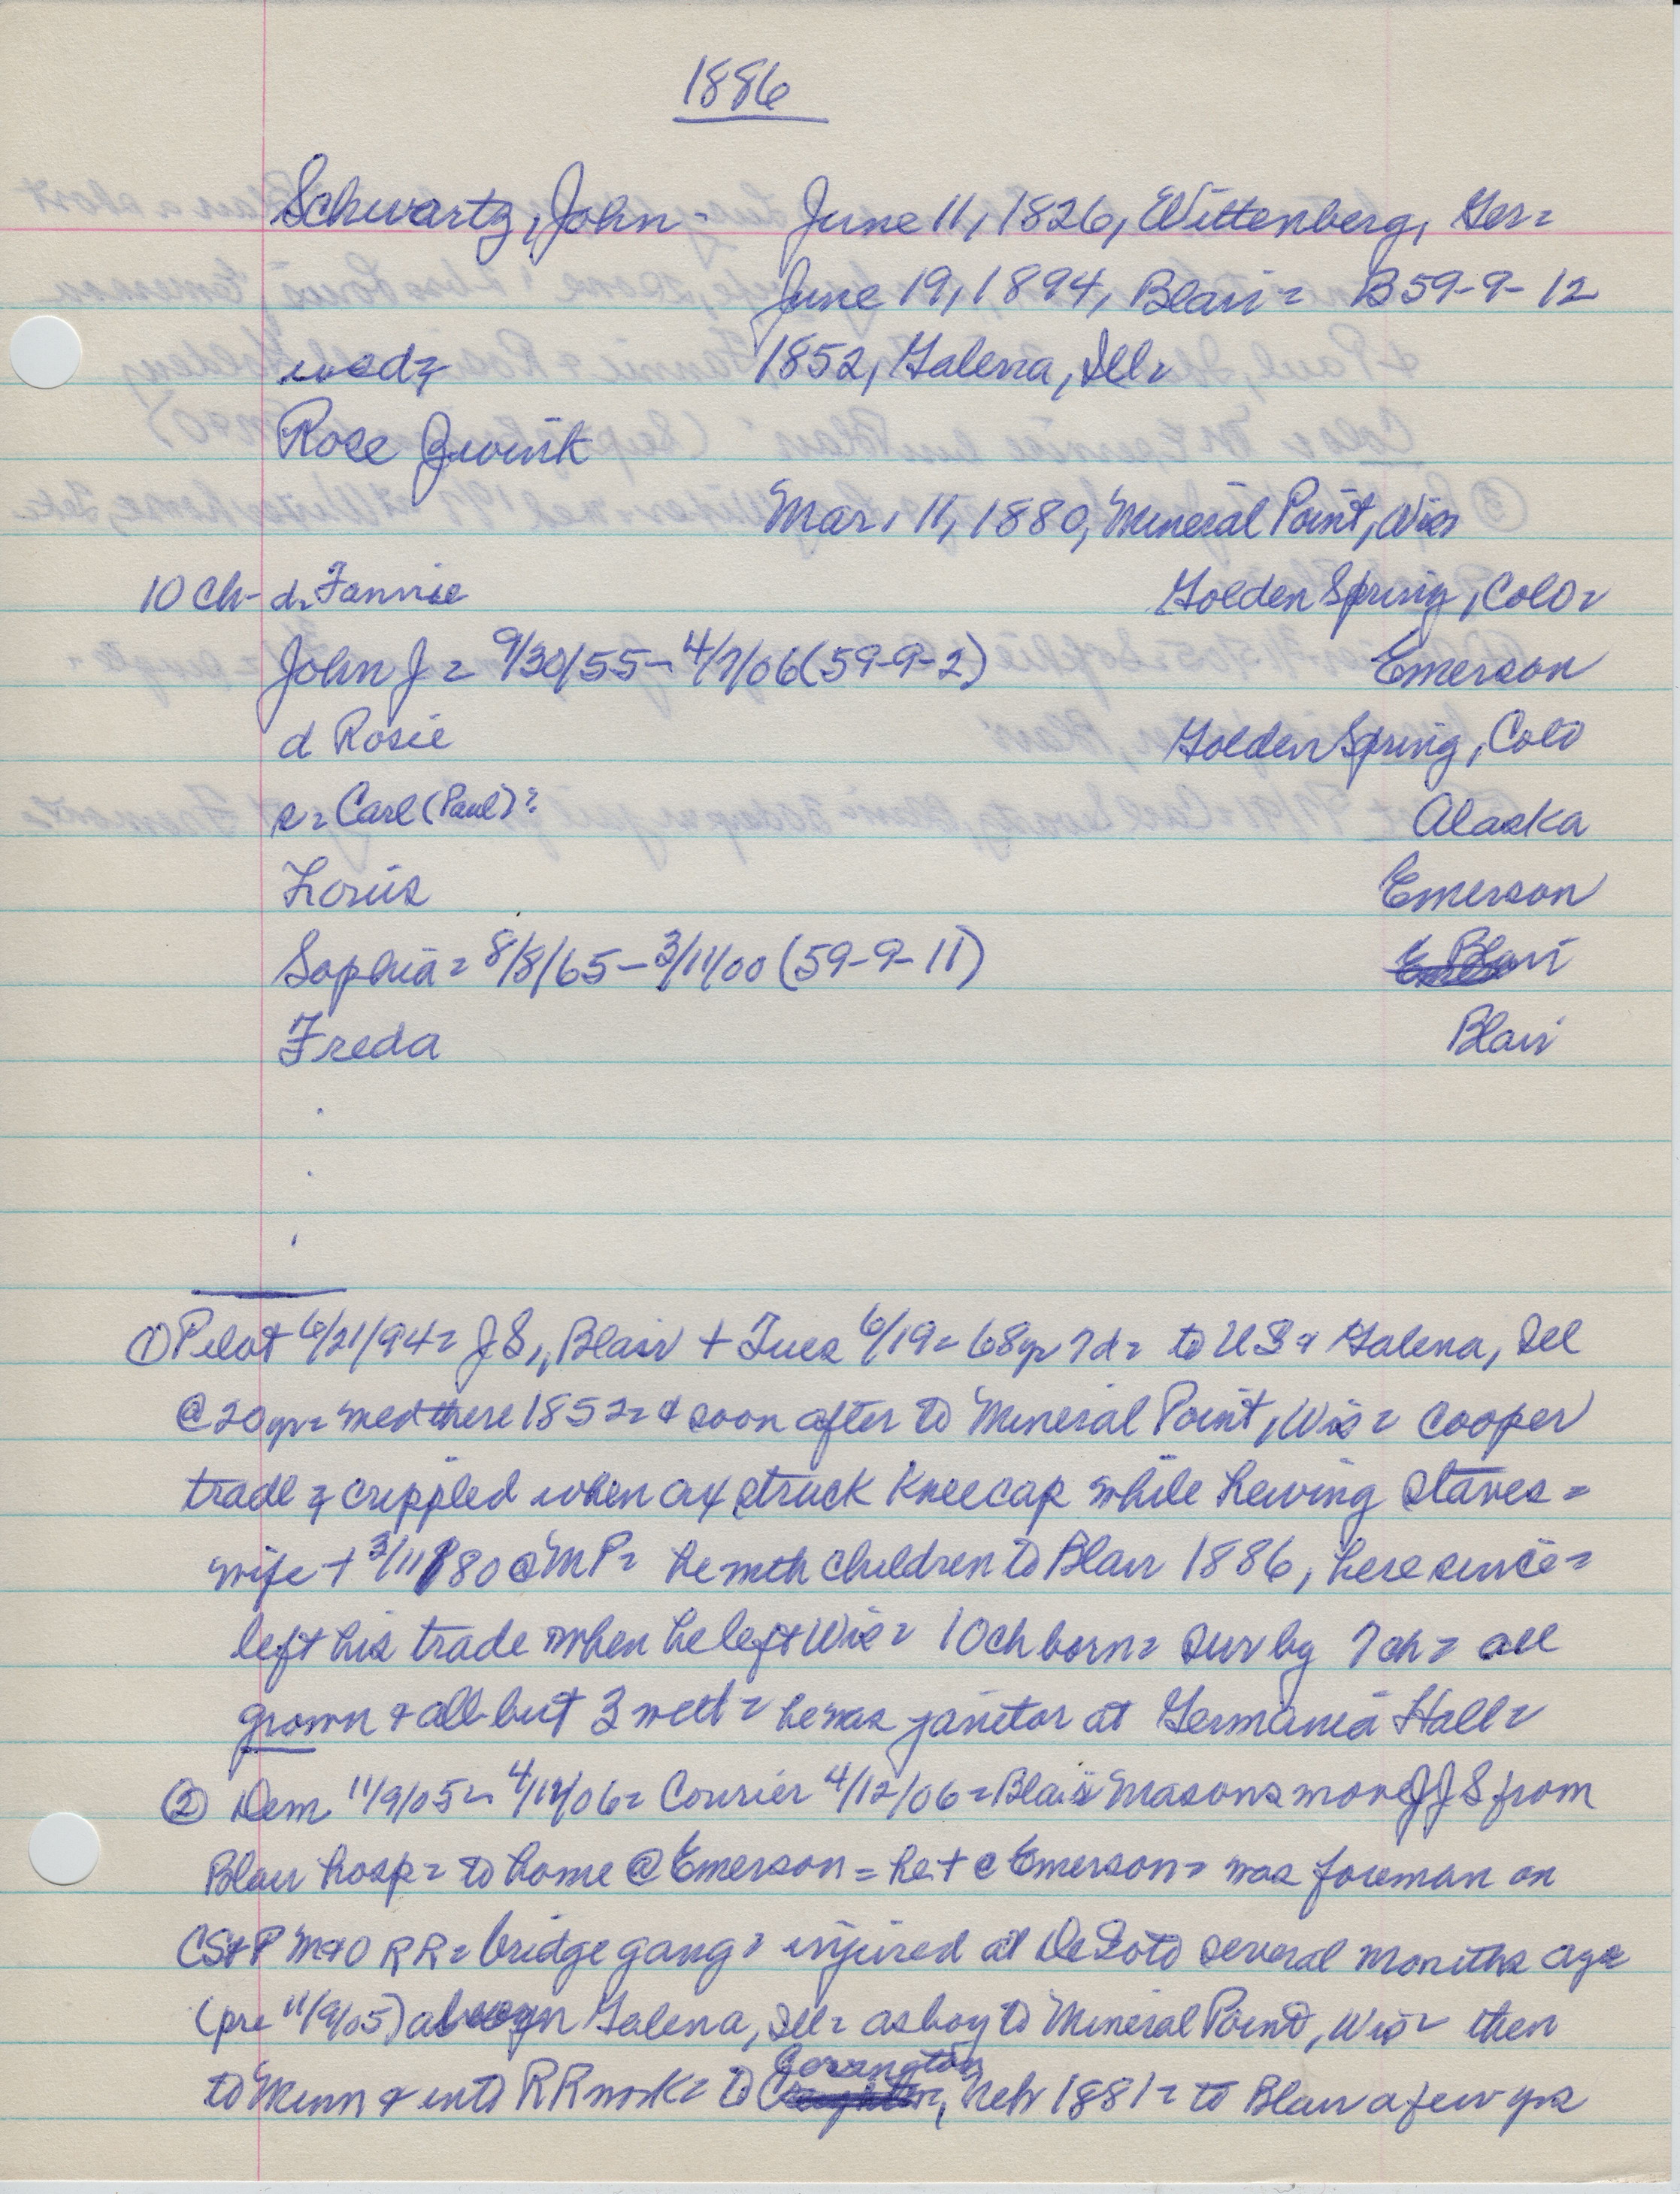 1886
Schwartz, John - June 11, 1826, Wittenberg, Ger=
June 19, 1894, Blair = B59-9-12
1852, Galena, Ill=
Rose
Mar. 11, 1880, Mineral Point, Wis
10 Ch - d. Fannie Golden Spring, Colo=
John J = 9/30/55 - 4/7/06 (59-9-2) Emerson
d Rosie Golden Spring, Colo
s = Carl (Paul)? Alaska
Louis Emerson
Sophia = 8/8/65 - 3/11/00 (59-9-11) Blair
Freda Blair
① Pilot 6/21/94 = J S, Blair + Tues 6/19 = 68yr 7d = to US & Galena, Ill
@ 20yr = med there 1852 = & soon after to Mineral Point, Wis = cooper
trade & crippled when ax struck kneecap while hewing staves =
wife + 3/11/80 @ MP = he with children to Blair 1886, here since =
left his trade when he left Wis = 10 ch born = sur by 7 ch = all
grown & all but 3 med = he was janitor at Germania Hall =
② Dem 11/9/05 = 4/12/06 = Courier 4/12/06 = Blair Masons move J J S from
Blair hosp = to home @ Emerson = he + @ Emerson = was foreman on
CSt P M&O RR = bridge gang = injured at DeSoto several months ago
(pre 11/9/05) Galena, Ill = as boy to Mineral Point, Wis = then
to Minn & into RR work = to Nebr 1881 = to Blair a few yrs